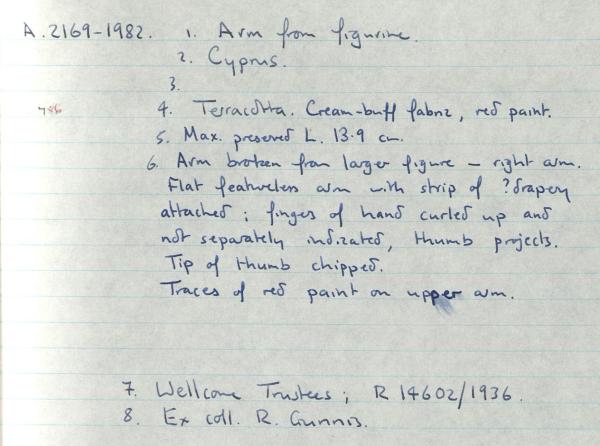 A.2169-1982. 1. Arm from figurine.
2. Cyprus.
3.
4. Terracotta. Cream-buff fabric, red paint.
5. Max. preserved L. 13.9 cm.
6. Arm broken from larger figure – right arm.
Flat featureless arm with strip of ?drapery
attached; fingers of hand curled up and
not separately indicated, thumb projects.
Tip of thumb chipped.
Traces of red paint on upper arm.
7. Wellcome Trustees; R 14602/1936.
8. Ex coll. R. Gunnis.